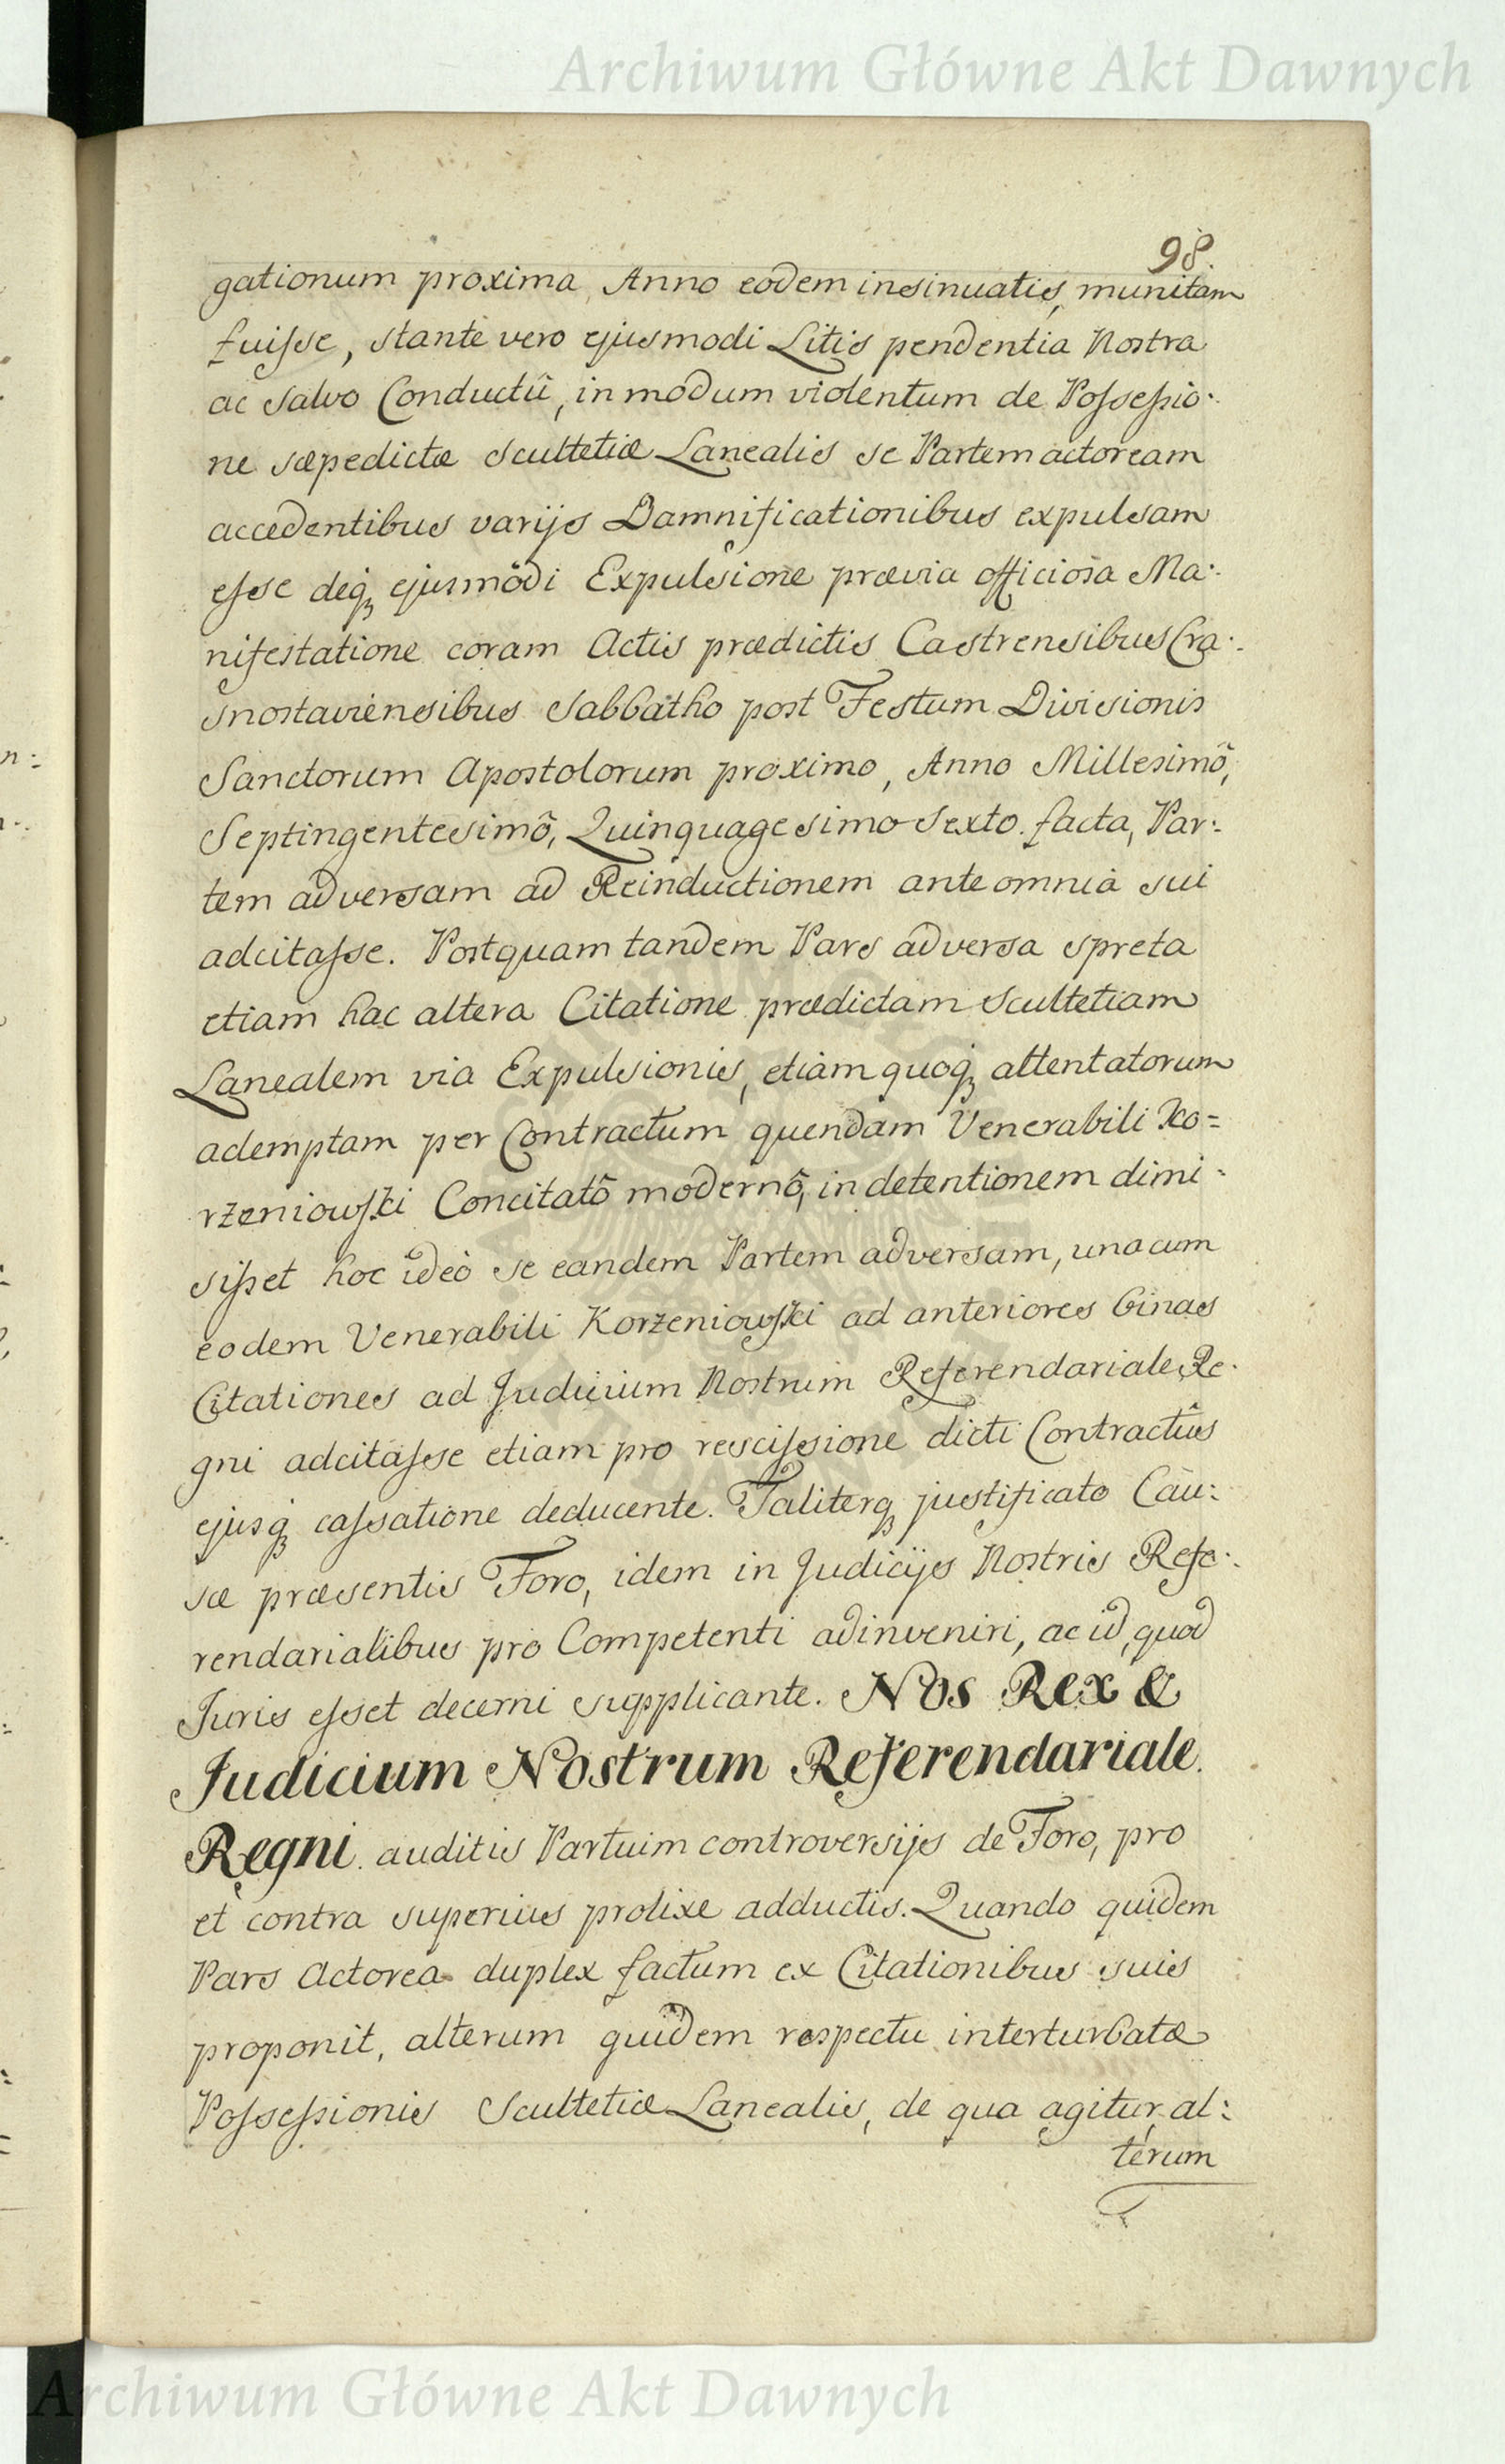 Archiwum Główne Akt Dawnych
98.
gationum proxima, Anno eodem insinuatis, munitam
fuiſse, stante vero ejusmodi Litis pendentia Nostra
ac Salvo Conductû, in modum violentum de Poſseſsio:
ne sæpedictæ Scultetiæ Lanealis se Partem actoream
accedentibus varijs Damnificationibus expulsam
eſse deq; ejusmodi Expulsione prævia officiosa Ma:
nifestatione coram Actis prædictis Castrensibus Cra:
snostaviensibus Sabbatho post Festum Divisionis
Sanctorum Apostolorum proximo, Anno Millesimô,
Septingentesimô, Quinquagesimo Sexto facta, Par:
tem adversam ad Reinductionem ante omnia sui
adcitaſse. Postquam tandem Pars adversa spreta
etiam hac altera Citatione prædictam Scultetiam
Lanealem via Expulsionis, etiam quoq; attentatorum
ademptam per Contractum quendam Venerabili Ko=
rzeniowſki Concitatô modernô, in detentionem dimi:
siſset hoc ideò se eandem Partem adversam, unacum
eodem Venerabili Korzeniowſki ad anteriores binas
Citationes ad Judicium Nostrum Referendariale Re:
gni adcitaſse etiam pro resciſsione dicti Contractûs
ejusq; caſsatione deducente. Taliterq; justificato Cau:
sæ præsentis Foro, idem in Judicijs Nostris Refe:
rendarialibus pro Competenti adinveniri, ac id, quod
Juris eſset decerni supplicante. Nos Rex &
Judicium Nostrum Referendariale
Regni auditis Partium controversijs de Foro, pro
et contra superius prolixe adductis. Quando quidem
Pars Actorea duplex factum ex Citationibus suis
proponit, alterum quidem respectu interturbatæ
Poſseſsionis Scultetiæ Lanealis, de qua agitur, al:
terum
Archiwum Główne Akt Dawnych